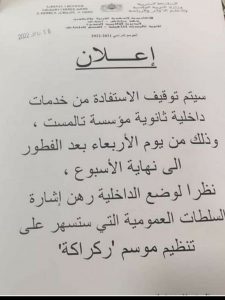 إعلان
سيتم توقيف الاستفادة من خدمات
داخلية ثانوية مؤسسة تالمست ،
وذلك من يوم الأربعاء بعد الفطور
الى نهاية الأسبوع ،
نظرا لوضع الداخلية رهن إشارة
السلطات العمومية التي ستسهر على
تنظيم موسم 'ركراكة'